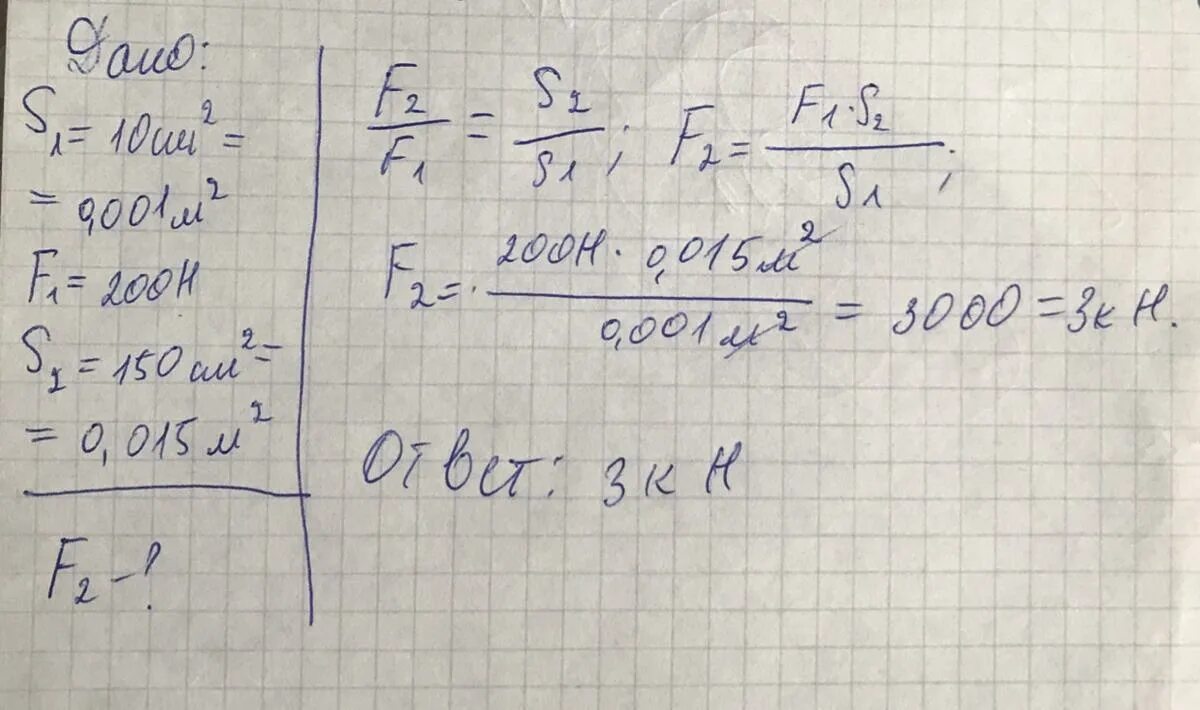 Дано:
S₁ = 10 см² =
= 0,001 м²
F₁ = 200 Н
S₂ = 150 см² =
= 0,015 м²
F₂ - ?
F₂/F₁ = S₂/S₁; F₂ = F₁·S₂/S₁;
F₂ = 200Н · 0,015 м²/0,001 м² = 3000 = 3к Н.
Ответ: 3 к Н